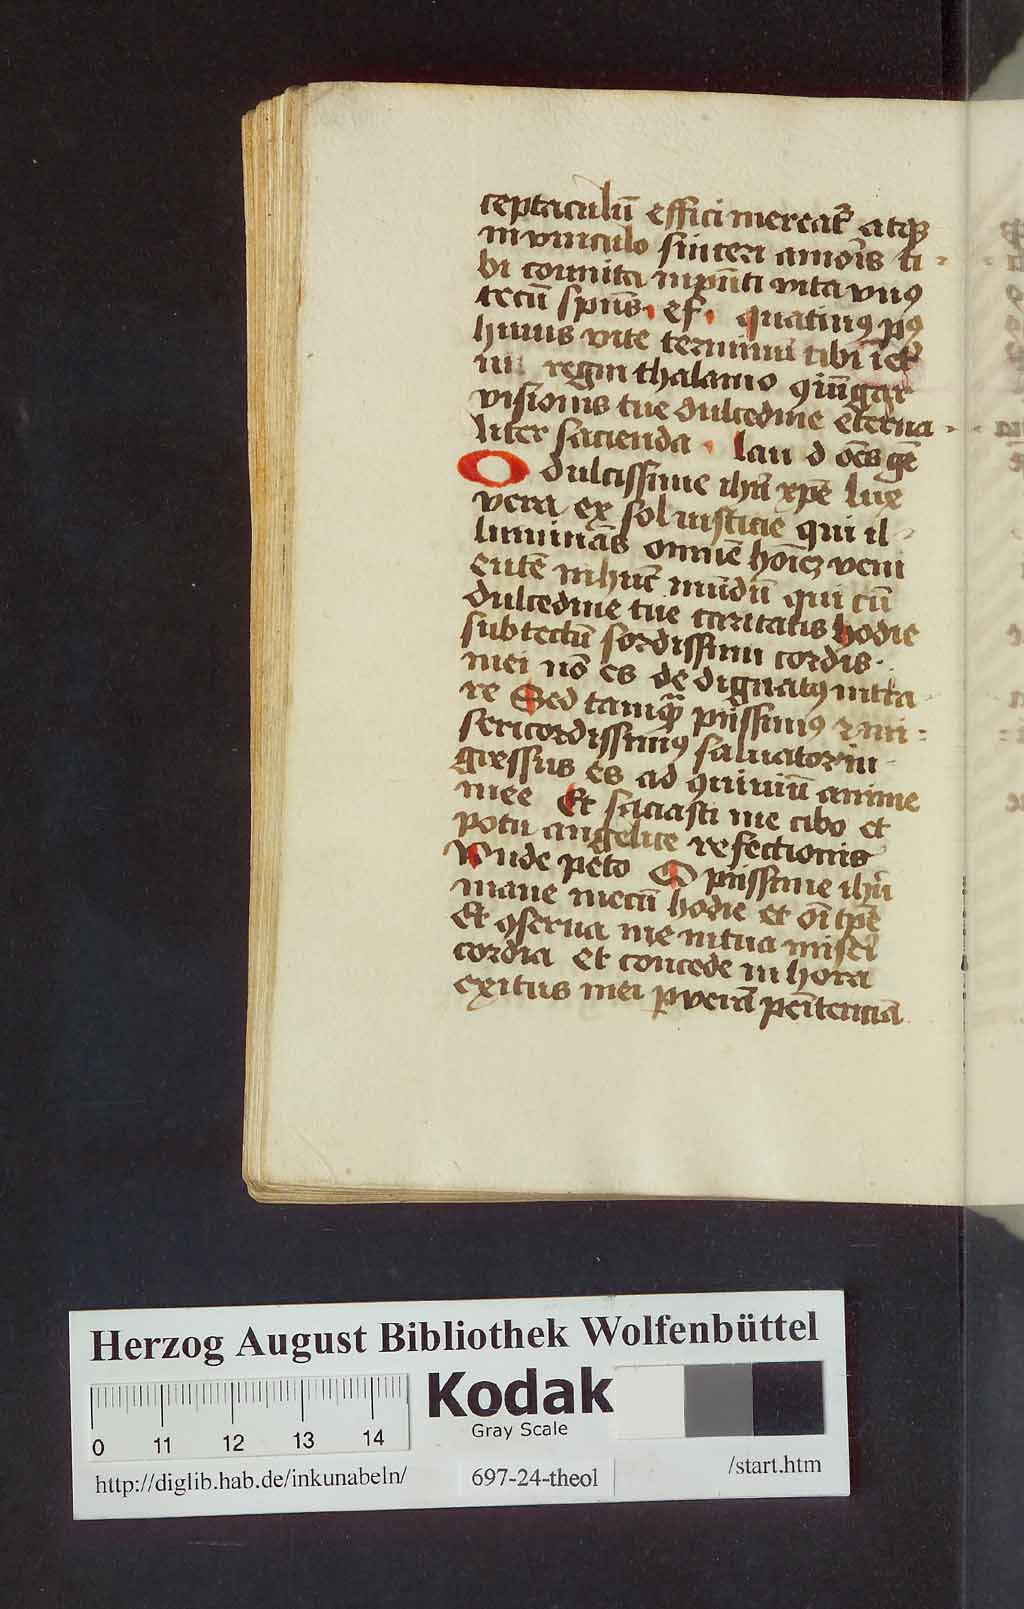 ceptaculū effici mereat᷑ atqꝫ
in vinculo sinceri amoris ti-
bi connita in pn̄ti vita vnꝰ
tecū spūs · ef · quatinꝰ pꝰ
huius vite terminū tibi
regni thalamo ꝯiūgar
visionis tue dulcedine eterna-
liter sacienda · lau d oēs gē
O dulcissime ihū xp̄e lux
vera ex sol iusticie qui il-
luminās omnē hoīeꝫ veni
entē in hūc mūdū qui cū
dulcedine tue caritatis hodie
sub tectū sordissimi cordis
mei nō es dedignatꝰ intra-
re Sed tamqꝫ piissimꝰ ⁊ mi-
sericordissimꝰ saluator in-
gressus es ad ꝯuiuiū anime
mee Et saciasti me cibo et
potu angelice refectionis
Vnde peto O piissime ihū
mane mecū hodie et oī tp̄e
Et ꝯserua me in tua miseri
cordia et concede in hora
exitus mei ꝑ verā penitenciā
Herzog August Bibliothek Wolfenbüttel
Kodak
Gray Scale
0 11 12 13 14
http://diglib.hab.de/inkunabeln/ 697-24-theol /start.htm